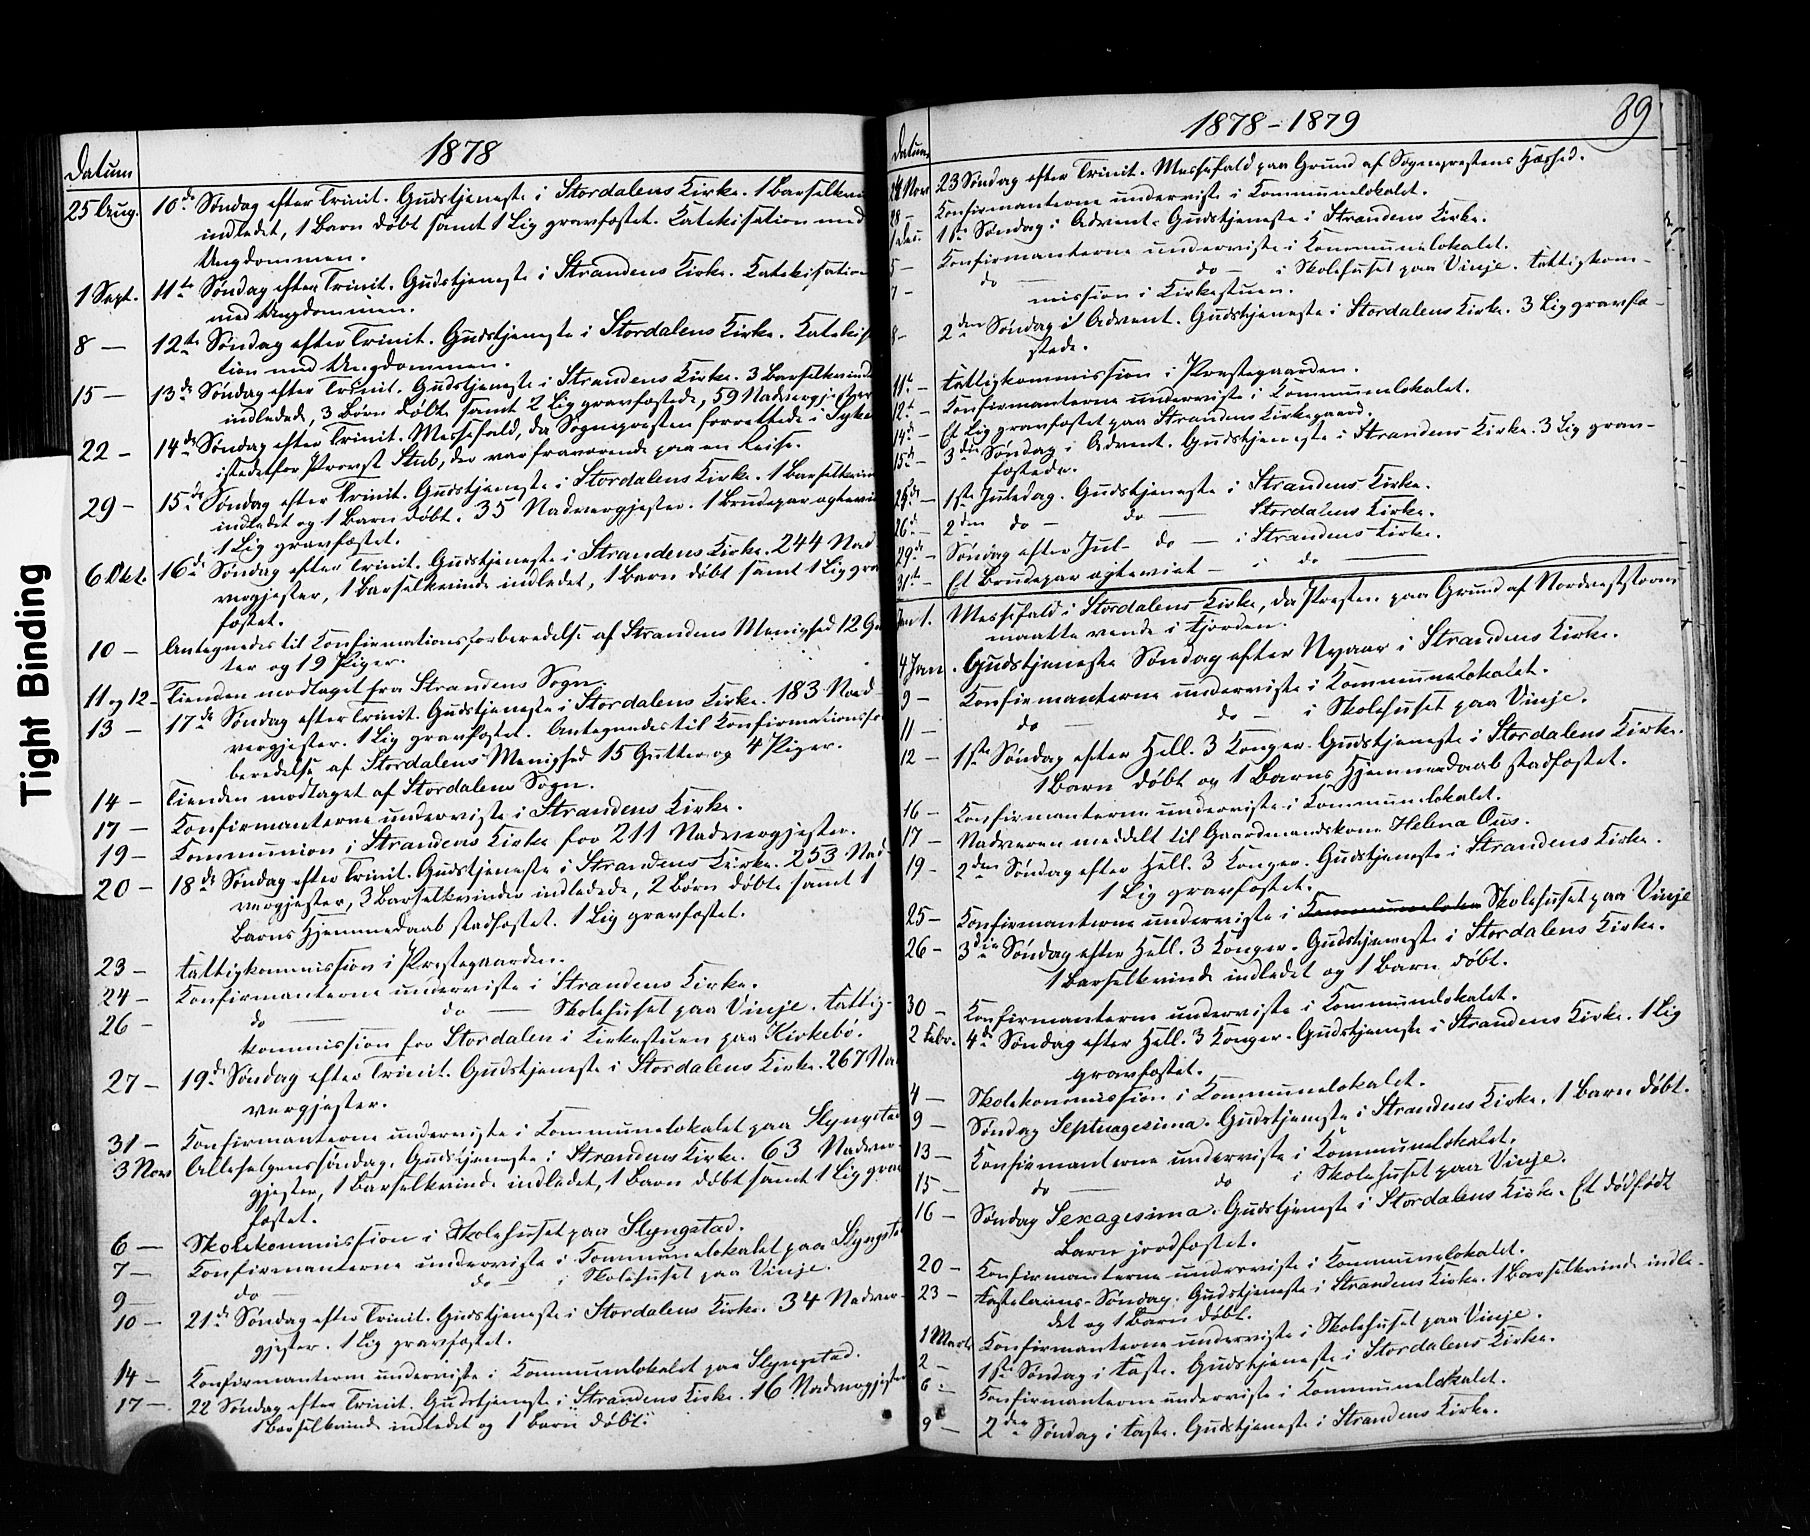 Tight Binding
Datum
1878
25 Aug. 10de Søndag efter Trinit. Gudstjeneste i Stordalens Kirke. 1 Barselkvin
indledet, 1 Barn døbt samt 1 Lig gravfæstet. Katekisation med
Ungdommen.
1 Sept. 11te Søndag efter Trinit. Gudstjeneste i Strandens Kirke. Katekisation
med Ungdommen.
8 — 12te Søndag efter Trinit. Gudstjeneste i Stordalens Kirke. Katekisa
tion med Ungdommen.
15 — 13de Søndag efter Trinit. Gudstjeneste i Strandens Kirke. 3 Barselkvinder
indledede, 3 Børn døbte samt 2 Lig gravfæstede, 59 Nadvergjester
22 — 14de Søndag efter Trinit. Messefald, da Sognepresten forrettede i Sykke
istedetfor Provst Stub, der var fraværende paa en Reise.
29 — 15de Søndag efter Trinit. Gudstjeneste i Stordalens Kirke. 1 Barselkvin
indledet og 1 Barn døbt. 35 Nadvergjester. 1 Brudepar ægtevi
1 Lig gravfæstet.
6 Okt. 16de Søndag efter Trinit. Gudstjeneste i Strandens Kirke. 244 Nad
vergjester, 1 Barselkvinde indledet, 1 Barn døbt samt 1 Lig gra
fæstet.
10 — Antegnedes til Konfirmationsforberedelse af Strandens Menighed 12 Gu
ter og 19 Piger.
11 og 12 — Tienden modtaget fra Strandens Sogn.
13 — 17de Søndag efter Trinit. Gudstjeneste i Stordalens Kirke. 183 Nad
vergjester. 1 Lig gravfæstet. Antegnedes til Konfirmationsfo
beredelse af Stordalens Menighed 15 Gutter og 4 Piger.
14 — Tienden modtaget af Stordalens Sogn.
17 — Konfirmanterne underviste i Strandens Kirke.
19 — Kommunion i Strandens Kirke for 211 Nadvergjester.
20 — 18de Søndag efter Trinit. Gudstjeneste i Strandens Kirke. 253 Nad-
vergjester, 3 Barselkvinder indledede, 2 Børn døbte samt 1
Barns Hjemmedaab stadfæstet. 1 Lig gravfæstet.
23 — Fattigkommission i Prestegaarden.
24 — Konfirmanterne underviste i Strandens Kirke.
26 — do — do — Skolehuset paa Vinje. Fattig-
kommission for Stordalen i Kirkestuen paa Kirkebø.
27 — 19de Søndag efter Trinit. Gudstjeneste i Stordalens Kirke. 267 Na
vergjester.
31 — Konfirmanterne underviste i Kommunelokalet paa Slyngstad
3 Nov Allehelgenssøndag. Gudstjeneste i Strandens Kirke. 63 Nadver-
gjester, 1 Barselkvinde indledet, 1 Barn døbt samt 1 Lig grav
fæstet.
6 — Skolekommission i Skolehuset paa Slyngstad.
7 — Konfirmanterne underviste i Kommunelokalet paa Slyngsta
9 — do — do — i Skolehuset paa Vinje.
10 — 21de Søndag efter Trinit. Gudstjeneste i Stordalens Kirke. 34 Nadver-
gjester. 1 Lig gravfæstet.
14 — Konfirmanterne underviste i Kommunelokalet paa Slyngstad.
17 — 22 Søndag efter Trinit. Gudstjeneste i Strandens Kirke. 16 Nadvergjester
1 Barselkvinde indledet og 1 Barn døbt.
Datum.
1878-1879
89
24 Nov 23 Søndag efter Trinit. Messefald paa Grund af Sogneprestens Hæshed.
28 Konfirmanterne underviste i Kommunelokalet.
1 Dec. 1ste Søndag i Advent. Gudstjeneste i Strandens Kirke.
5 — Konfirmanterne underviste i Kommunelokalet.
7 — do — do — i Skolehuset paa Vinje. Fattigkom-
mission i Kirkestuen.
8 — 2den Søndag i Advent. Gudstjeneste i Stordalens Kirke. 3 Lig gravfæ-
stede.
11te — Fattigkommission i Prestegaarden.
12te — Konfirmanterne underviste i Kommunelokalet.
14de — Et Lig gravfæstet paa Strandens Kirkegaard.
15de — 3die Søndag i Advent. Gudstjeneste i Strandens Kirke. 3 Lig grav-
fæstede.
25de — 1ste Juledag. Gudstjeneste i Strandens Kirke.
26de — 2den do — do — Stordalens Kirke.
29de — Søndag efter Jul — do — i Strandens Kirke.
31te — Et Brudepar ægteviet — i do —
Jan 1. Messefald i Stordalens Kirke, da Presten paa Grund af Nordveststorm
maatte vende i Fjorden.
4 Jan. Gudstjeneste Søndag efter Nyaar i Strandens Kirke.
9 — Konfirmanterne underviste i Kommunelokalet.
11 — do — do — i Skolehuset paa Vinje.
12 — 1ste Søndag efter Hell. 3 Konger. Gudstjeneste i Stordalens Kirke.
1 Barn døbt og 1 Barns Hjemmedaab stadfæstet.
16 — Konfirmanterne underviste i Kommunelokalet.
17 — Nadveren meddelt til Gaardmandskone Helena Aus.
19 — 2den Søndag efter Hell. 3 Konger. Gudstjeneste i Strandens Kirke.
1 Lig gravfæstet.
25 — Konfirmanterne underviste i Kommuneloka Skolehuset paa Vinje
26 — 3die Søndag efter Hell. 3 Konger. Gudstjeneste i Stordalens Kirke.
1 Barselkvinde indledet og 1 Barn døbt.
30 — Konfirmanterne underviste i Kommunelokalet.
2 Febr. 4de Søndag efter Hell. 3 Konger. Gudstjeneste i Strandens Kirke. 1 Lig
gravfæstet.
4 — Skolekommission i Kommunelokalet.
9 — Søndag Septuagesima. Gudstjeneste i Strandens Kirke. 1 Barn døbt.
13 — Konfirmanterne underviste i Kommunelokalet.
15 — do — do i Skolehuset paa Vinje.
16 — Søndag Sexagesima. Gudstjeneste i Stordalens Kirke. Et dødfødt
Barn jordfæstet.
20 — Konfirmanterne underviste i Kommunelokalet.
23 — Fastelavns-Søndag. Gudstjeneste i Strandens Kirke. 1 Barselkvinde indle-
det og 1 Barn døbt.
1 Marts Konfirmanterne underviste i Skolehuset paa Vinje.
2 — 1ste Søndag i Faste. Gudstjeneste i Stordalens Kirke.
6 — Konfirmanterne underviste i Kommunelokalet.
9 — 2den Søndag i Faste. Gudstjeneste i Strandens Kirke.